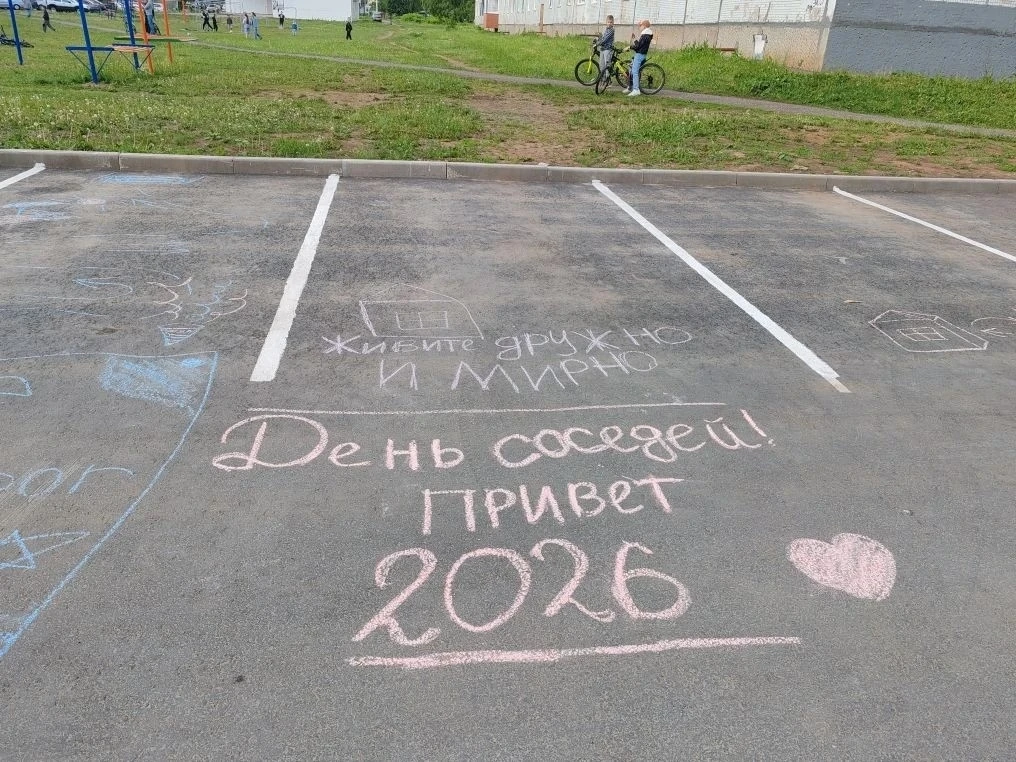 Живите дружно
и мирно
День соседей!
Привет
2026